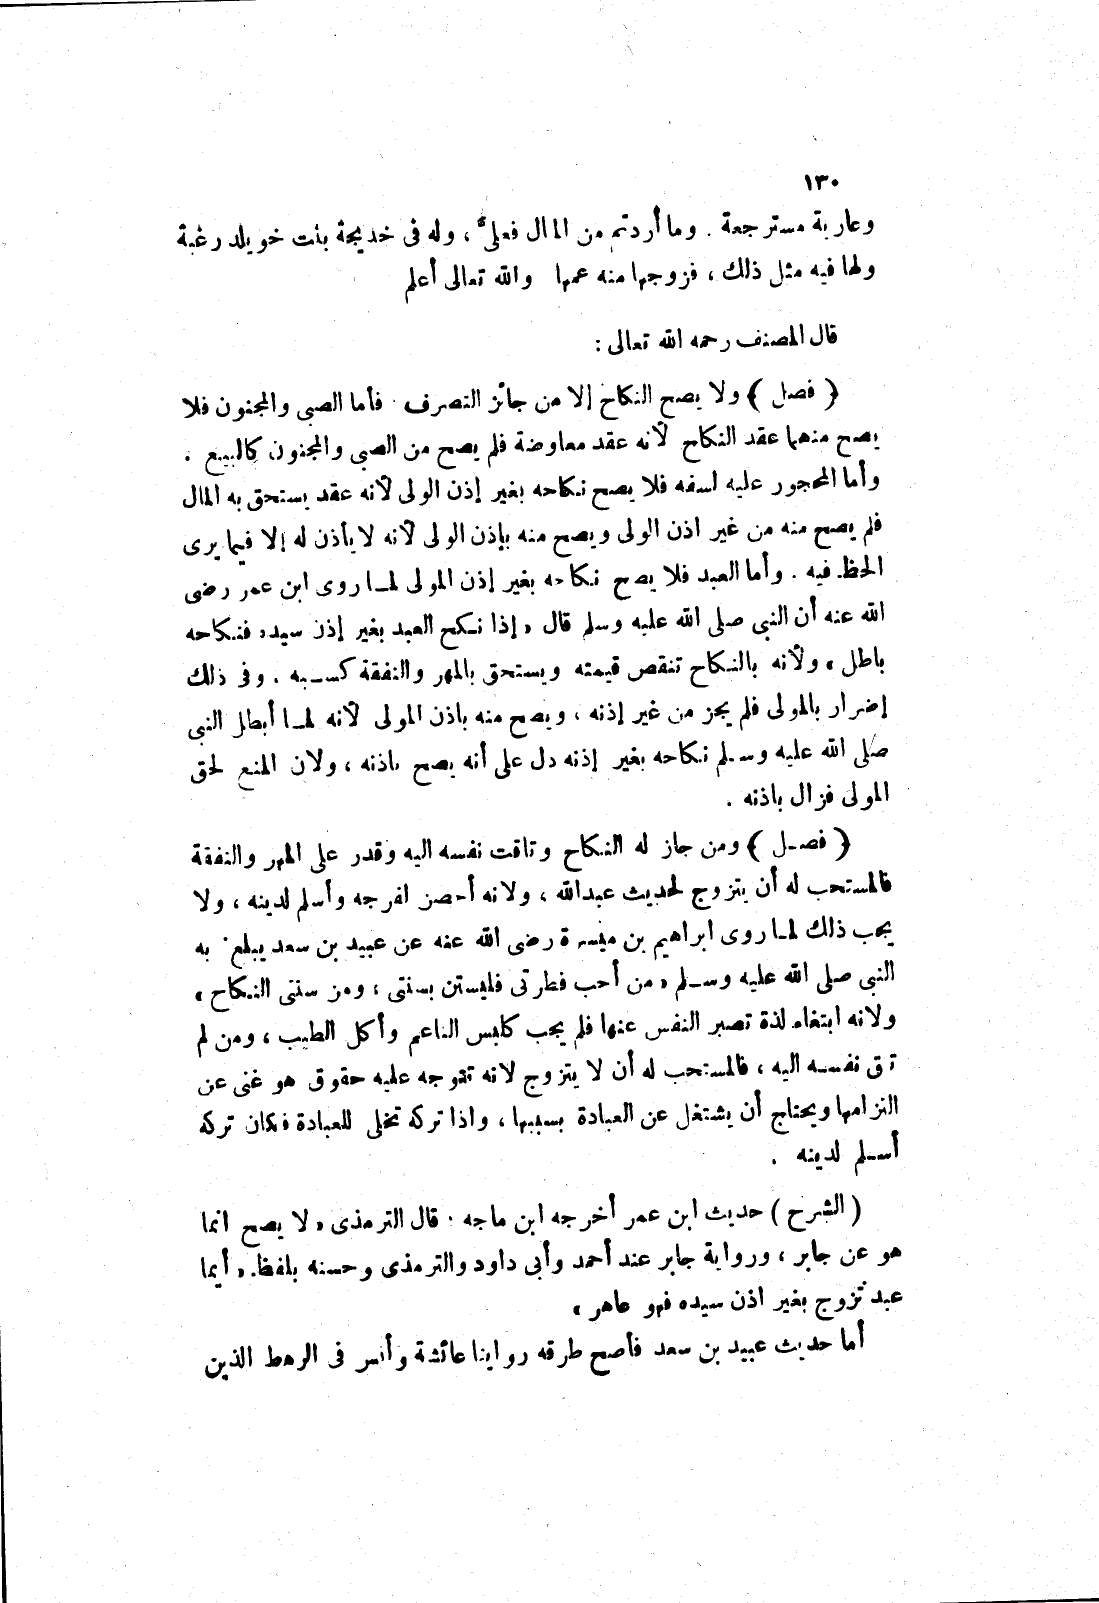 ١٣٠
وعارية مسترجعة . وما أردتم من المال فعلىّ ، وله فى خديجة بنت خويلد رغبة
ولها فيه مثل ذلك ، فزوجها منه عمها والله تعالى أعلم
قال المصنف رحمه الله تعالى :
﴿ فصل ﴾ ولا يصح النكاح إلا من جائز التصرف . فأما الصبى والمجنون فلا
يصح منهما عقد النكاح لأنه عقد معاوضة فلم يصح من الصبى والمجنون كالبيع .
وأما المحجور عليه لسفه فلا يصح نكاحه بغير إذن الولى لأنه عقد يستحق به المال
فلم يصح منه من غير اذن الولى ويصح منه بإذن الولى لأنه لا يأذن له إلا فيما يرى
الحظ فيه . وأما العبد فلا يصح نكاحه بغير إذن المولى لما روى ابن عمر رضى
الله عنه أن النبى صلى الله عليه وسلم قال « إذا نكح العبد بغير إذن سيده فنكاحه
باطل » ولأنه بالنكاح تنقص قيمته ويستحق بالمهر والنفقة كسبه . وفى ذلك
إضرار بالمولى فلم يجز من غير إذنه ، ويصح منه باذن المولى لأنه لما أبطل النبى
صلى الله عليه وسلم نكاحه بغير إذنه دل على أنه يصح باذنه ، ولان المنع لحق
المولى فزال باذنه .
﴿ فصل ﴾ ومن جاز له النكاح وتاقت نفسه اليه وقدر على المهر والنفقة
فالمستحب له أن يتزوج لحديث عبدالله ، ولانه أحصن لفرجه وأسلم لدينه ، ولا
يجب ذلك لما روى ابراهيم بن ميسرة رضى الله عنه عن عبيد بن سعد يبلغ به
النبى صلى الله عليه وسلم « من أحب فطرتى فليستن بسنتى ، ومن سنتى النكاح »
ولانه ابتغاء لذة تصبر النفس عنها فلم يجب كلبس الناعم وأكل الطيب ، ومن لم
تتق نفسه اليه ، فالمستحب له أن لا يتزوج لانه تتوجه عليه حقوق هو غنى عن
التزامها ويحتاج أن يشتغل عن العبادة بسببها ، واذا تركه تخلى للعبادة فكان تركه
أسلم لدينه .
( الشرح ) حديث ابن عمر أخرجه ابن ماجه . قال الترمذى « لا يصح انما
هو عن جابر ، ورواية جابر عند أحمد وأبى داود والترمذى وحسنه بلفظ « أيما
عبد تزوج بغير اذن سيده فهو عاهر »
أما حديث عبيد بن سعد فأصح طرقه روايتا عائشة وأنس فى الرهط الذين